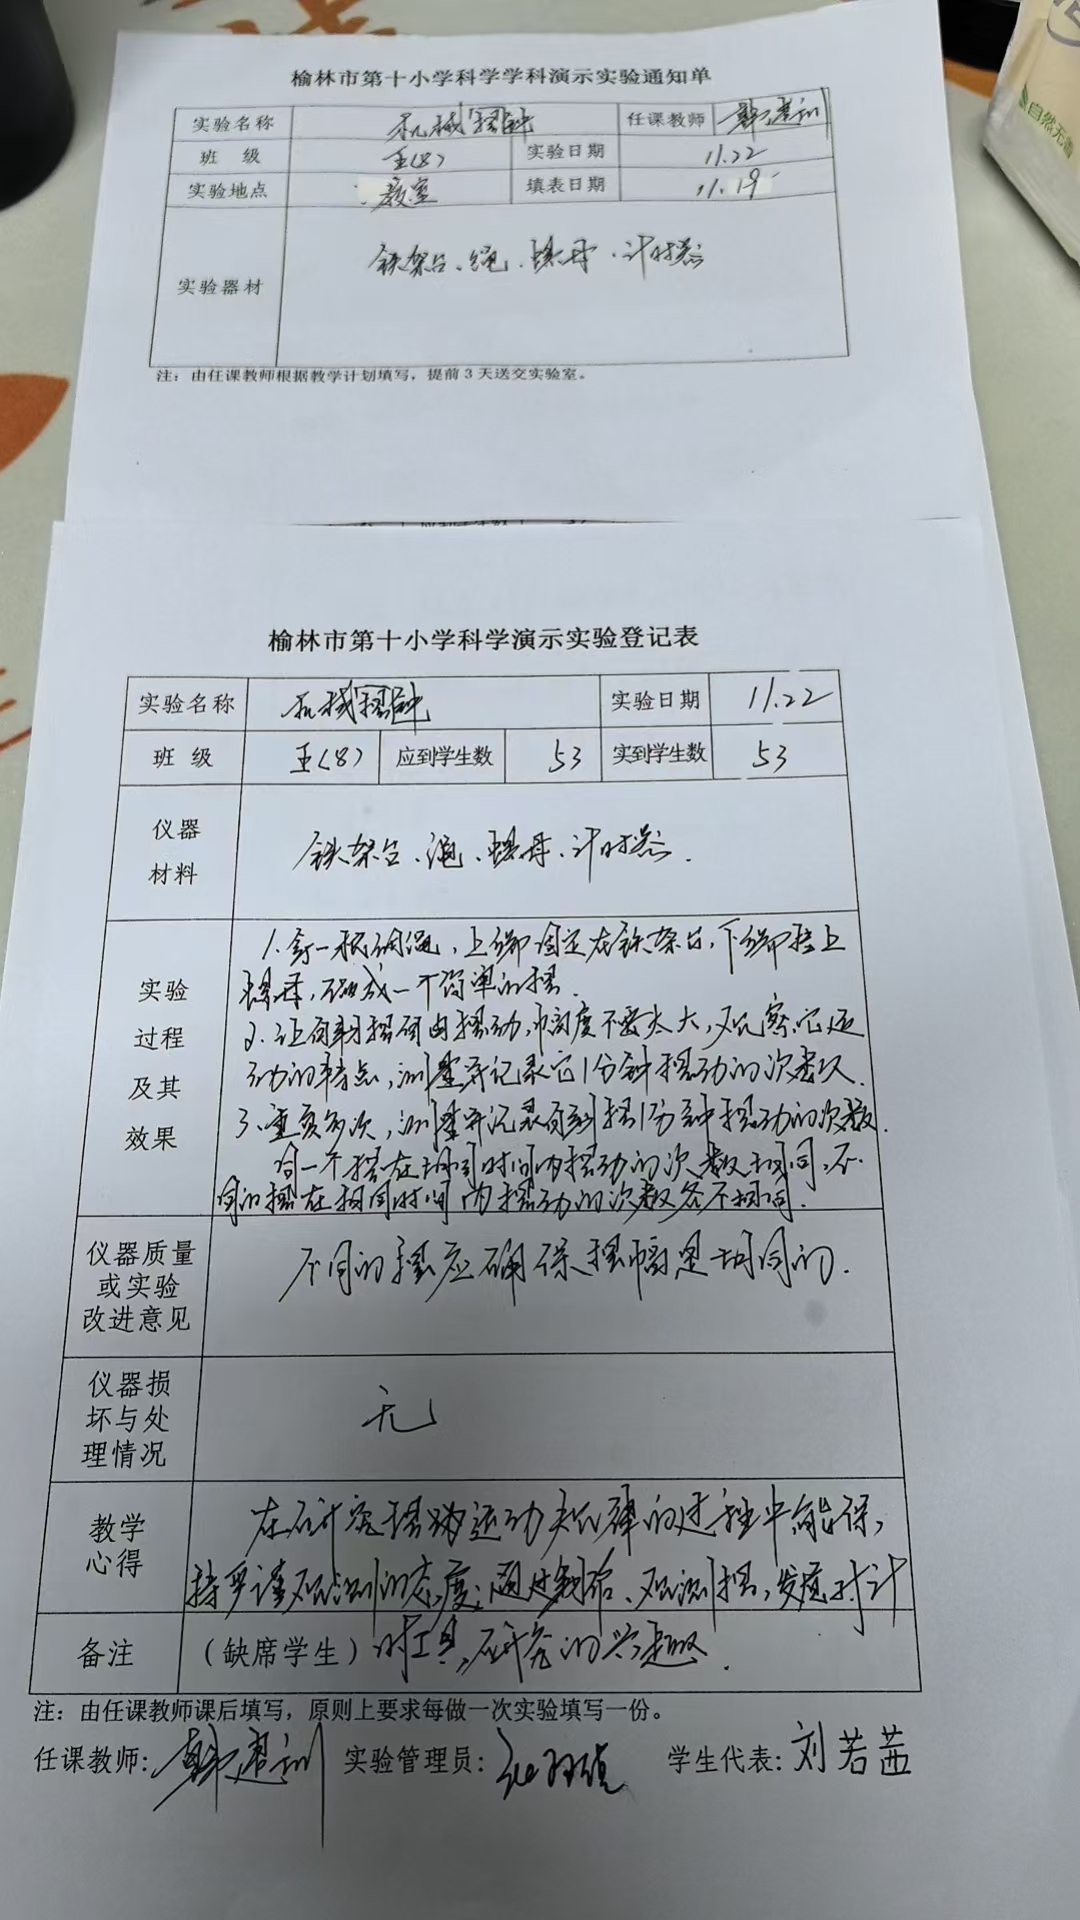 自然无香
榆林市第十小学科学学科演示实验通知单
实验名称 机械摆钟 任课教师
班 级 五(8) 实验日期 11.22
实验地点 教室 填表日期 11.19
实验器材 铁架台、绳、螺母、计时器
注：由任课教师根据教学计划填写，提前3天送交实验室。
榆林市第十小学科学演示实验登记表
实验名称 机械摆钟 实验日期 11.22
班 级 五(8) 应到学生数 53 实到学生数 53
仪器
材料
铁架台、绳、螺母、计时器.
实验
过程
及其
效果
1.拿一根细绳，上端固定在铁架台，下端挂上
螺母，做成一个简单的摆.
2.让自制摆自由摆动，幅度不要太大，观察它运
动的特点，测量并记录它1分钟摆动的次数.
3.重复多次，测量并记录自制摆1分钟摆动的次数.
同一个摆在相同时间内摆动的次数相同，不
同的摆在相同时间内摆动的次数各不相同.
仪器质量
或实验
改进意见
不同的摆应确保摆幅是相同的.
仪器损
坏与处
理情况
无
教学
心得
在研究摆的运动规律的过程中能保
持严谨观测的态度；通过制作、观测摆，发展对计
备注 （缺席学生） 时工具研究的兴趣.
注：由任课教师课后填写，原则上要求每做一次实验填写一份。
任课教师: 实验管理员: 学生代表: 刘若茜